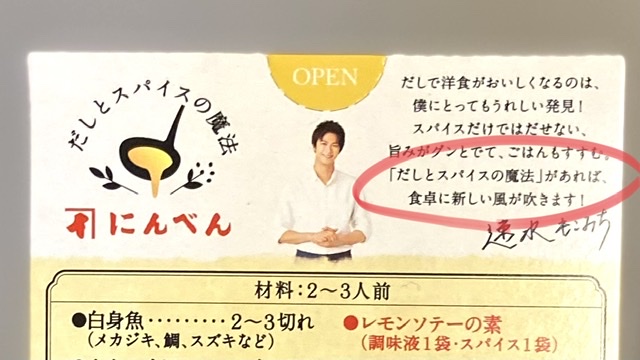 だしとスパイスの魔法
にんべん
OPEN
だしで洋食がおいしくなるのは、
僕にとってもうれしい発見!
スパイスだけではだせない、
旨みがグンとでて、ごはんもすすむ。
「だしとスパイスの魔法」があれば、
食卓に新しい風が吹きます!
速水もこみち
材料:2〜3人前
●白身魚………2〜3切れ
(メカジキ、鯛、スズキなど)
●レモンソテーの素
(調味液1袋・スパイス1袋)